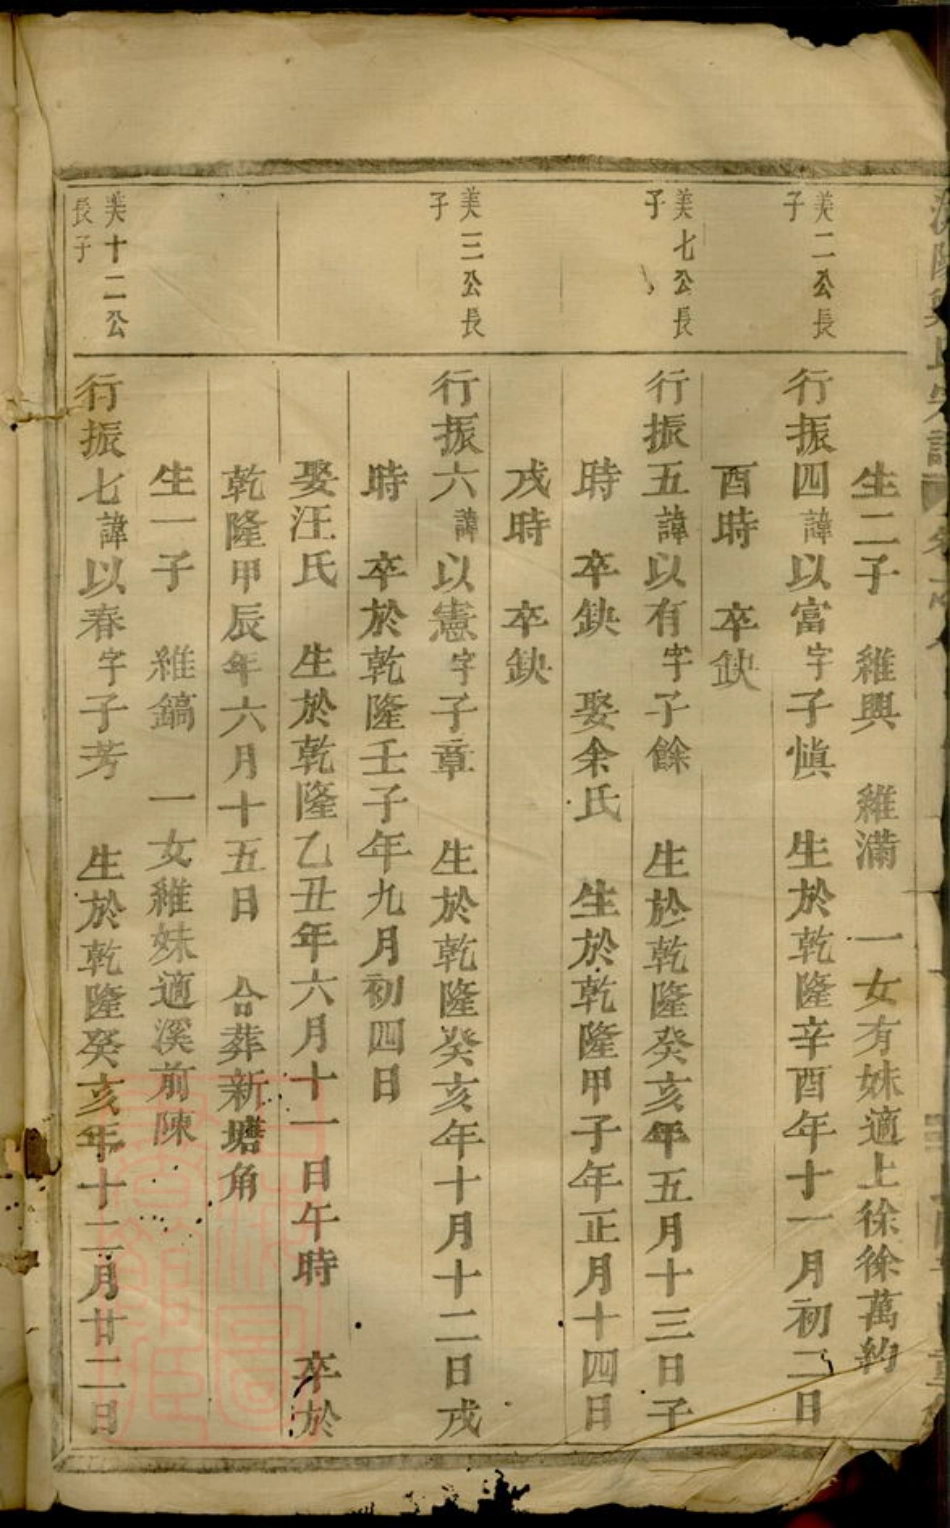 生二子 維興 維滿 一女有妹適上徐徐萬約
美二公長
子
行振四諱以富字子慎 生於乾隆辛酉年十一月初二日
酉時 卒缺
美七公長
子
行振五諱以有字子餘 生於乾隆癸亥年五月十三日子
時 卒缺 娶余氏 生於乾隆甲子年正月十四日
戌時 卒缺
美三公長
子
行振六諱以憲字子章 生於乾隆癸亥年十月十二日戌
時 卒於乾隆壬子年九月初四日
娶汪氏 生於乾隆乙丑年六月十一日午時 卒於
乾隆甲辰年六月十五日 合葬新塘角
生一子 維鎬 一女維妹適溪前陳
美十二公
長子
行振七諱以春字子芳 生於乾隆癸亥年十二月廿二日